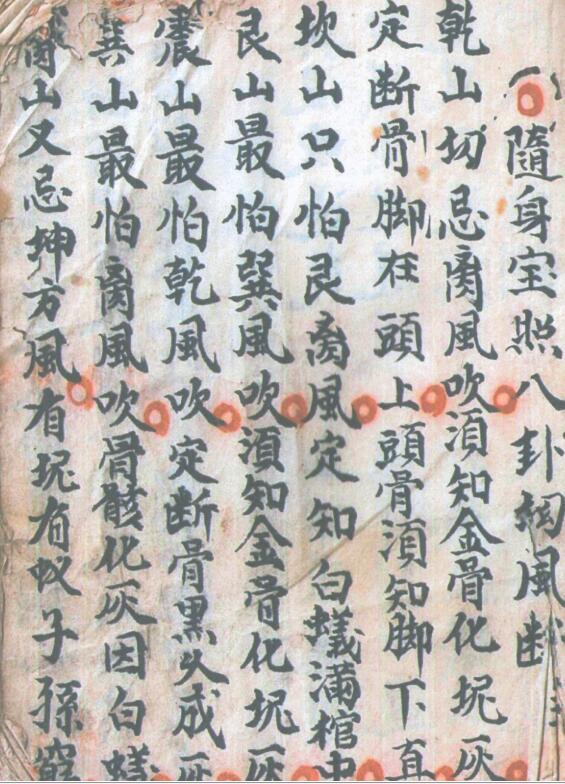 隨身宝照八卦風断
乾山切忌离風吹須知金骨化坭灰
定断骨脚在頭上頭骨須知脚下直
坎山只怕艮离風定知白蟻满棺中
艮山最怕巽風吹須知金骨化坭灰
震山最怕乾風吹定断骨黑火成灰
巽山最怕离風吹骨骸化灰因白蟻
离山又忌坤方風有坭有蚁子孫窮